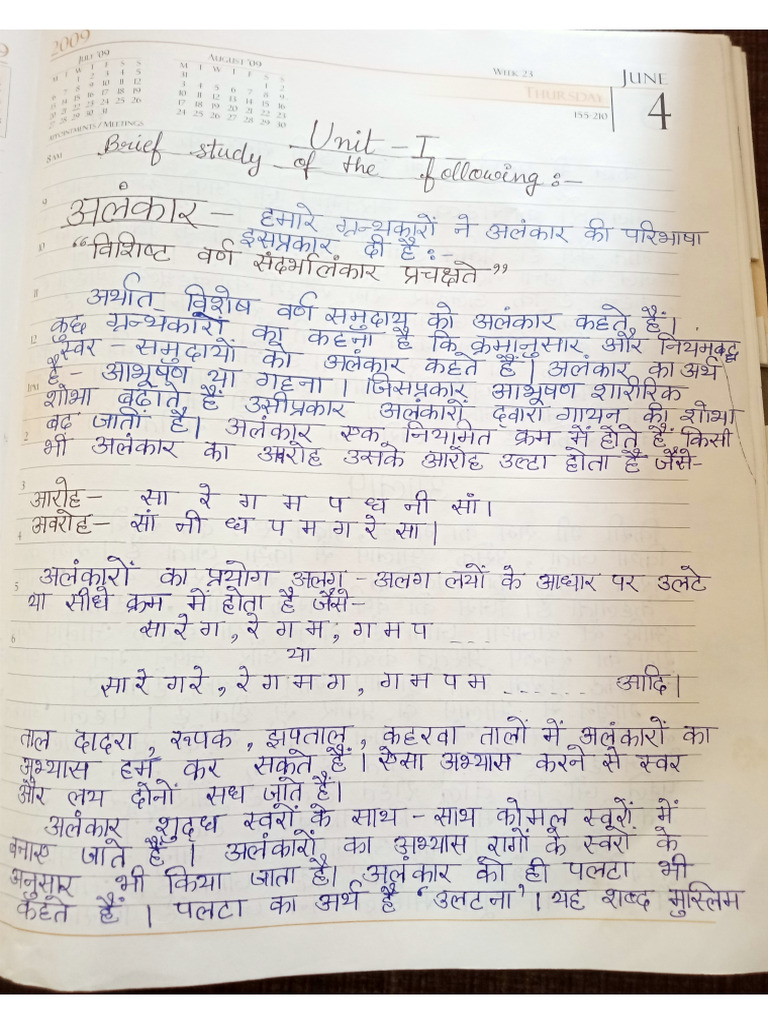 2009
JULY '09
AUGUST '09
WEEK 23
JUNE
THURSDAY
4
155-210
M T W T F S S
31 1 2
3 4 5 6 7 8 9
10 11 12 13 14 15 16
17 18 19 20 21 22 23
24 25 26 27 28 29 30
APPOINTMENTS / MEETINGS
8 AM
Unit - I
Brief study of the following :-
9
अलंकार - हमारे ग्रन्थकारों ने अलंकार की परिभाषा
इसप्रकार दी है :-
10
“विशिष्ट वर्ण संदर्भालंकार प्रचक्षते”
11
अर्थात विशेष वर्ण समुदाय को अलंकार कहते हैं।
कुछ ग्रन्थकारों का कहना है कि क्रमानुसार और नियमबद्ध
12
स्वर - समुदायों को अलंकार कहते हैं। अलंकार का अर्थ
है - आभूषण या गहना। जिसप्रकार आभूषण शारीरिक
1PM
शोभा बढ़ाते हैं उसीप्रकार अलंकारों द्वारा गायन की शोभा
बढ जाती है। अलंकार एक नियमित क्रम में होते हैं किसी
2
भी अलंकार का आरोह उसके आरोह उल्टा होता है जैसे-
3
आरोह - सा रे ग म प ध नी सां।
अवरोह - सां नी ध प म ग रे सा।
4
5
अलंकारों का प्रयोग अलग - अलग लयों के आधार पर उलटे
या सीधे क्रम में होता है जैसे-
सा रे ग , रे ग म , ग म प _ _ _
6
या
सा रे ग रे , रे ग म ग , ग म प म _ _ _ _ _ _ आदि।
ताल दादरा , रूपक , झपताल , कहरवा तालों में अलंकारों का
अभ्यास हम कर सकते हैं। ऐसा अभ्यास करने से स्वर
और लय दोनों सध जाते हैं।
अलंकार शुद्ध स्वरों के साथ - साथ कोमल स्वरों में
बनाए जाते हैं। अलंकारों का अभ्यास रागों के स्वरों के
अनुसार भी किया जाता है। अलंकार को ही पलटा भी
कहते हैं। पलटा का अर्थ है ‘उलटना’। यह शब्द मुस्लिम